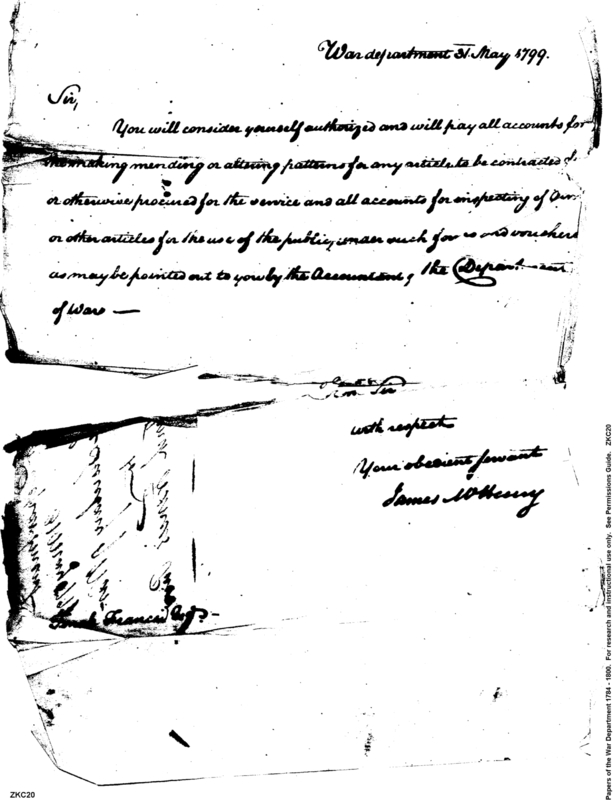 War department 31 May 1799.
Sir,
You will consider yourself authorized and will pay all accounts for
making mending or altering patterns for any article to be contracted
or otherwise procured for the service and all accounts for inspecting of
or other articles for the use of the public, under such and vouchers
as may be pointed out to you by the Accountant of the Depart
of War —
Sir
with respect
Your obedient Servant
James McHenry
Tench Francis Esqr.
Papers of the War Department 1784 - 1800. For research and instructional use only. See Permissions Guide. ZKC20
ZKC20